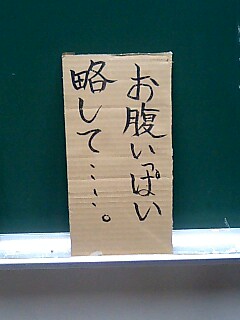 お腹いっぱい
略して……。